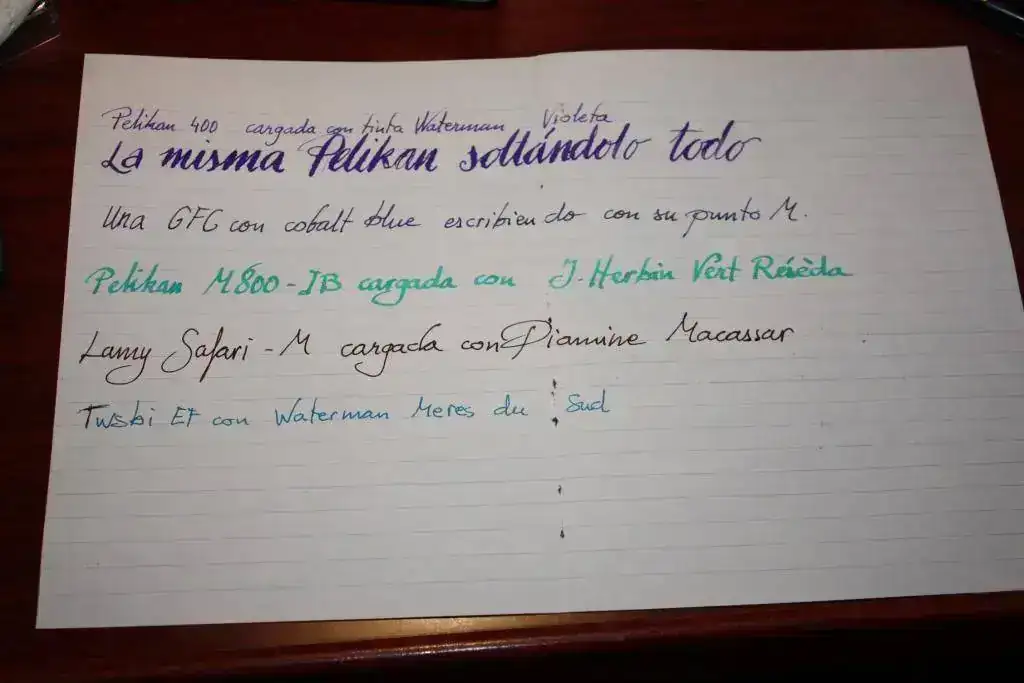 Pelikan 400 cargada con tinta Waterman Violeta
La misma Pelikan soltándolo todo
Una GFC con cobalt blue escribiendo con su punto M.
Pelikan M800-IB cargada con J. Herbin Vert Réséda
Lamy Safari - M cargada con Diamine Macassar
Twsbi EF con Waterman Meres du Sud